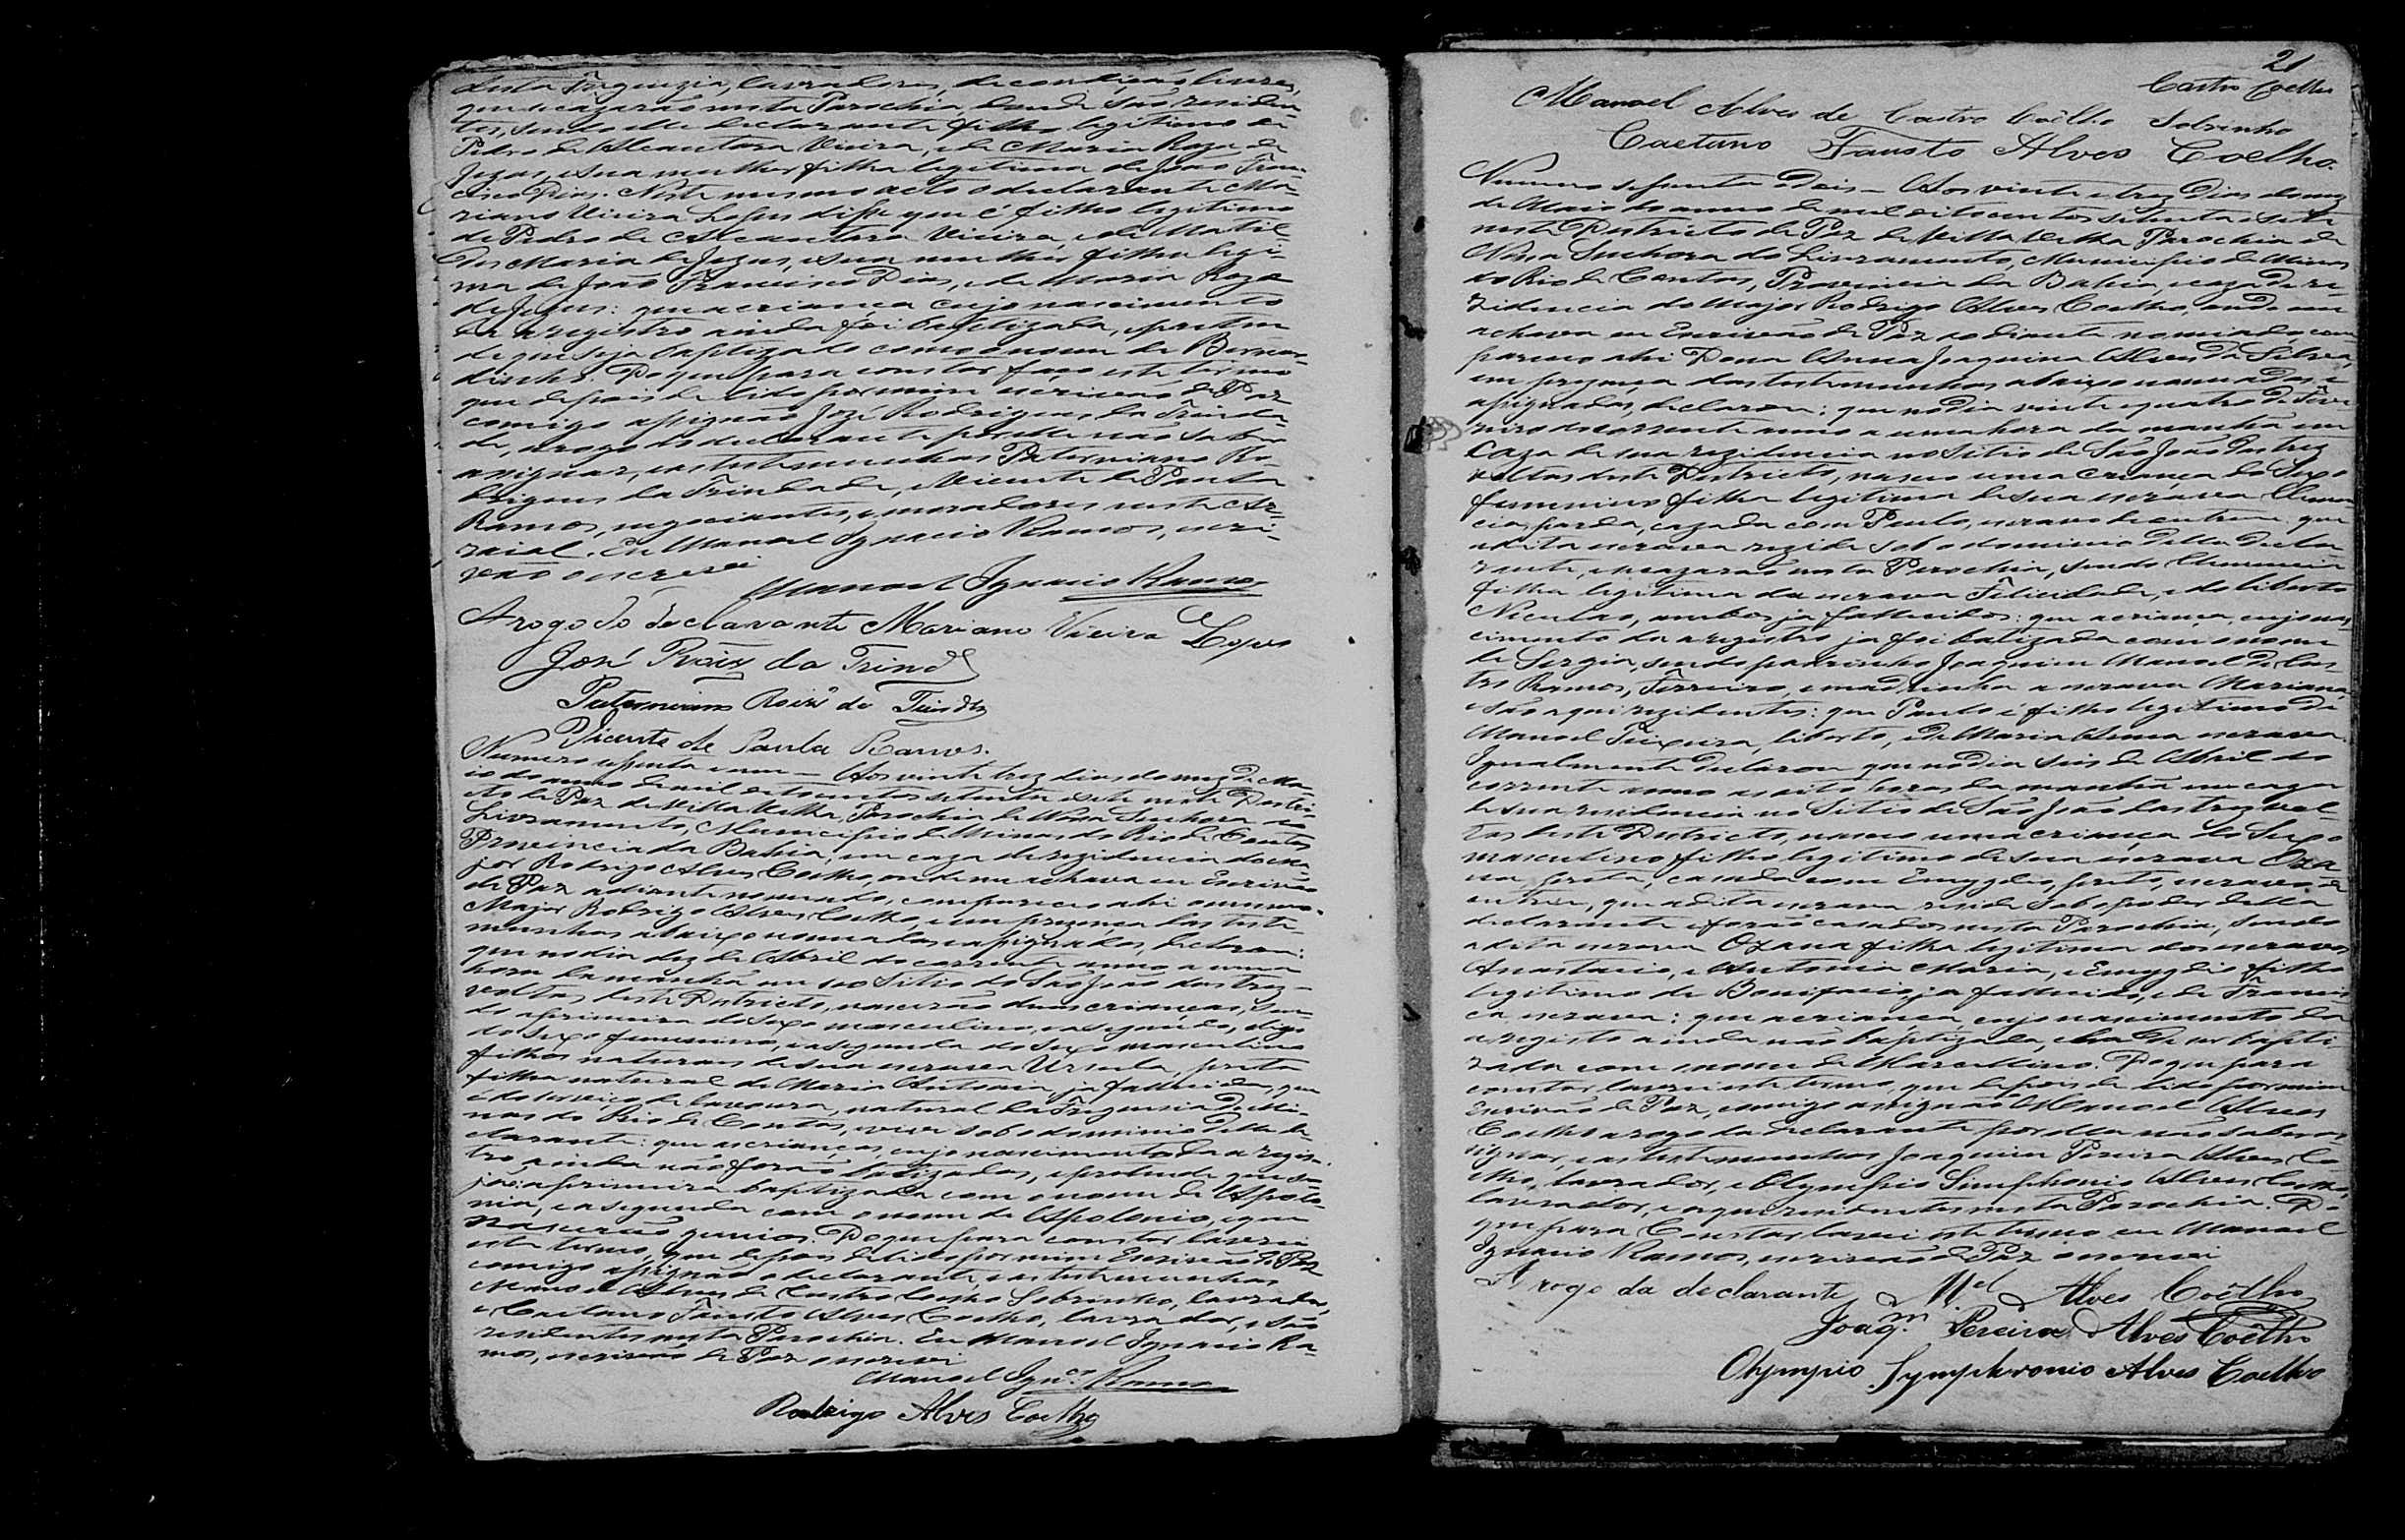 desta Freguezia, lavradores, de condição livres,
que se cazarão nesta Parochia, donde são residen-
tes, sendo elle declarante filho legitimo de
Pedro de Alcantara Vieira, e de Maria Roza de
Jezus, e sua mulher filha legitima de João Fran-
cisco Dias. Neste mesmo acto o declarante Ma-
riano Vieira Lopes disse que é filho legitimo
de Pedro de Alcantara Vieira, e de Matil-
des Maria de Jezus, e sua mulher filha legi-
ma de João Francisco Dias, e de Maria Roza
de Jezus: que a criança cujo nascimento
da a registro ainda foi baptizada, e pretende
de que seja baptizado com o nome de Bernar-
dinho. Do que para constar faço este termo
que depois de lido por mim escrivão de Paz
comigo assignão José Rodrigues da Trinda-
de, arogo do declarante por elle não saber
assignar, e as testemunhas Paterniano Ro-
drigues da Trindade, e Vicente de Paula
Ramos, negociantes, e moradores neste Ar-
raial. Eu Manoel Ignacio Ramos, escri-
vão o escrevi
Manoel Ignacio Ramos
Arogo do declarante Mariano Vieira Lopes
José Roiz da Trind
Paterniano Roiz da Trindde
Vicente de Paula Ramos.
Numero setenta e um – Aos vinte trez dias do mez de Ma-
io do anno de mil oitocentos setenta e sete neste Destri-
cto de Paz de Villa Velha, Parochia de Nossa Senhora do
Livramento, Municipio de Minas do Rio de Contas
Provincia da Bahia, em caza de rezidencia do Ma-
jor Rodrigo Alves Coelho, onde me achava eu Escrivão
de Paz adiante nomeado, compareceo ahi o mesmo
Major Rodrigo Alves Coelho, e em prezença das teste-
munhas abaixo nomeadas e assignadas, declarou:
que no dia dez de Abril do corrente anno a uma
hora da manhã em seo Sitio do São João das trez
voltas deste Districto, nascerão duas crianças, sen-
do a primeira do sexo masculino, e a segunda, digo
do sexo femenino, e a segunda do sexo masculino
filhos naturaes de sua escrava Ursula, preta
filha natural de Maria Antonia, ja fallecida, que
é do serviço de lavoura, natural da Freguezia de Mi-
nas do Rio de Contas, e vive sob o dominio delle de-
clarante: que as crianças, cujo nascimento da a regis-
tro ainda não forão batizadas, e pretende que se-
ja: a primeira baptizada com o nome de Apolo-
nia, e a segunda com o nome de Apolonio, e que
nascerão gemeos. Do que para constar lavrei
este termo, que depois de lido por mim Escrivão de Paz
comigo assignão o declarante, e as testemunhas
Manoel Alves de Castro Coelho Sobrinho, lavrador,
e Caetano Fausto Alves Coelho, lavrador, e são
residentes nesta Parochia. Eu Manoel Ignacio Ra-
mos, escrivão de Paz o escrevi
Manoel Igncº Ramos
Rodrigo Alves Coelho
21
Castro Coelho
Manoel Alves de Castro Coêlho Sobrinho
Caetano Fausto Alves Coelho.
Numero setenta e dois – Aos vinte e trez dias do mez
de Maio do anno de mil oitocentos setenta e sete
neste Destricto de Paz de Villa Velha Parochia de
Nossa Senhora do Livramento, Municipio de Minas
do Rio de Contas, Provincia da Bahia, e caza de re-
zidencia do Major Rodrigo Alves Coelho, onde me
achava eu Escrivão de Paz ao diante nomiado, com-
pareceo ahi Dona Anna Joaquina Alves da Silva,
em prezença das testemunhas abaixo nomeadas e
assignadas, declarou: que no dia vinte e quatro de Feve-
reiro do corrente anno a uma hora da manhã em
Caza de sua rezidencia no Sitio de São João das trez
voltas deste Districto, nasceo uma criança do Sexo
femenino filha legitima de sua escrava Clemen-
cia, parda, cazada com Paulo, escravo de outrem que
a dita escrava rezide sob o dominio della decla-
rante, e se cazarão nesta Parochia, sendo Clemencia
filha legitima da escrava Felicidade, e do liberto
Nicolao, ambos ja fallecidos: que a criança, cujo nas-
cimento da a registro, ja foi batizada com o nome
de Sergia, sendo padrinho Joaquim Manoel de Cas-
tro Ramos, Ferreiro, e madrinha a escrava Mariana,
e são aqui rezidentes: que Paulo é filho legitimo de
Manoel Teixeira, liberto, e de Maria Clema escrava.
Igualmente declarou que no dia seis de Abril do
corrente anno as oito horas da manhã em caza
de sua residencia no Sitio de São João das trez vol-
tas deste Districto, nasceo uma criança do Sexo
masculino filho legitimo de sua escrava Oza-
na, preta, casada com Emygdio, preto, escravo de
outrem, que a dita escrava reside sob o poder della
declarante e forão casados nesta Parochia, sendo
a dita escrava Ozana filha legitima dos escravos
Anastacio, e Antonia Maria, e Emygdio filho
legitimo de Bonifacio, ja fallecido, e de Francis-
ca, escrava: que a criança, cujo nascimento da
a registo ainda não baptizada, e ha de ser bapti-
zada com o nome de Marcellino. Do que para
constar lavrei este termo, que depois de lido por mim
Escrivão de Paz, comigo assignão Manoel Alves
Coelho arogo da declarante por ella não saber as-
signar, e as testemunhas Joaquim Pereira Alves Co-
elho, lavrador, e Olympio Simphonio Alves Coelho,
lavrador, e aqui residentes nesta Parochia. Do
que para Constar lavrei este termo eu Manoel
Ignacio Ramos, escrivão de Paz o escrevi
A rogo da declarante Mel Alves Coêlho
Joaqm. Pereira Alves Coêlho
Olympio Symphronio Alves Coelho